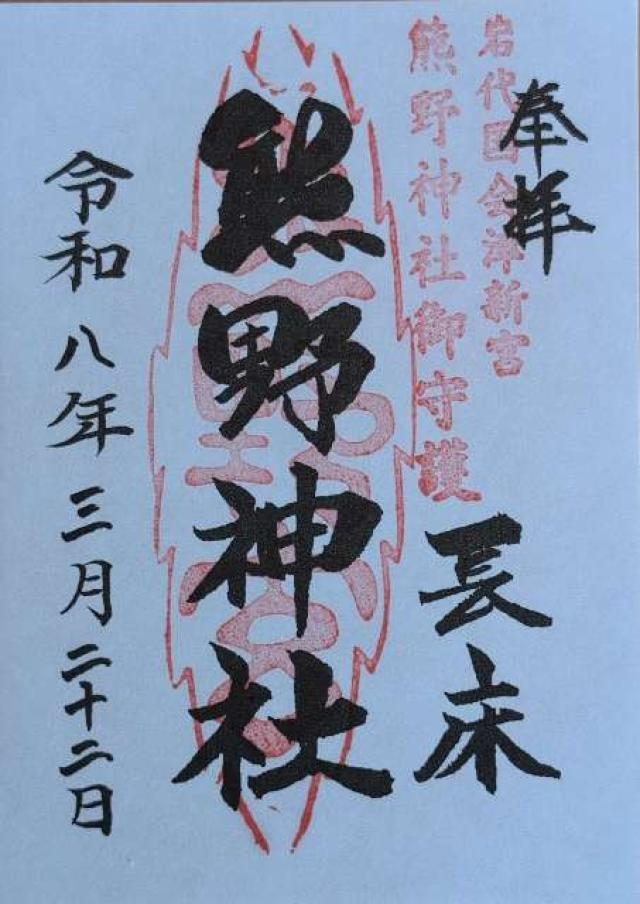 奉拝
岩代国会津新宮
熊野神社御守護
長床
熊野神社
令和八年三月二十二日